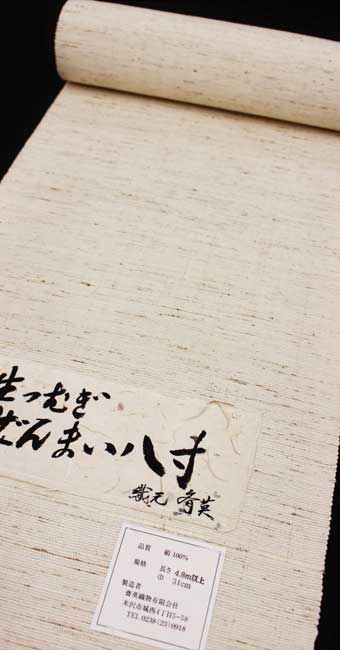 生つむぎ
ぜんまい八寸
織元 斉英
品質 絹 100%
規格 長さ 4.8m以上
巾 31cm
製造者
齋英織物有限会社
米沢市城西4丁目5-58
TEL 0238(23)0918